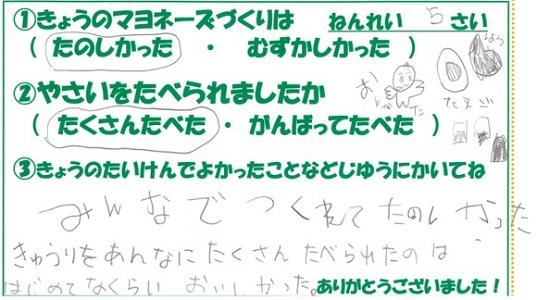 ①きょうのマヨネーズづくりは ねんれい 5 さい
( たのしかった ・ むずかしかった )
②やさいをたべられましたか
( たくさんたべた ・ がんばってたべた )
たまご
③きょうのたいけんでよかったことなどじゆうにかいてね
みんなでつくれてたのしかった
きゅうりをあんなにたくさんたべられたのは
はじめてなくらいおいしかった。
ありがとうございました!